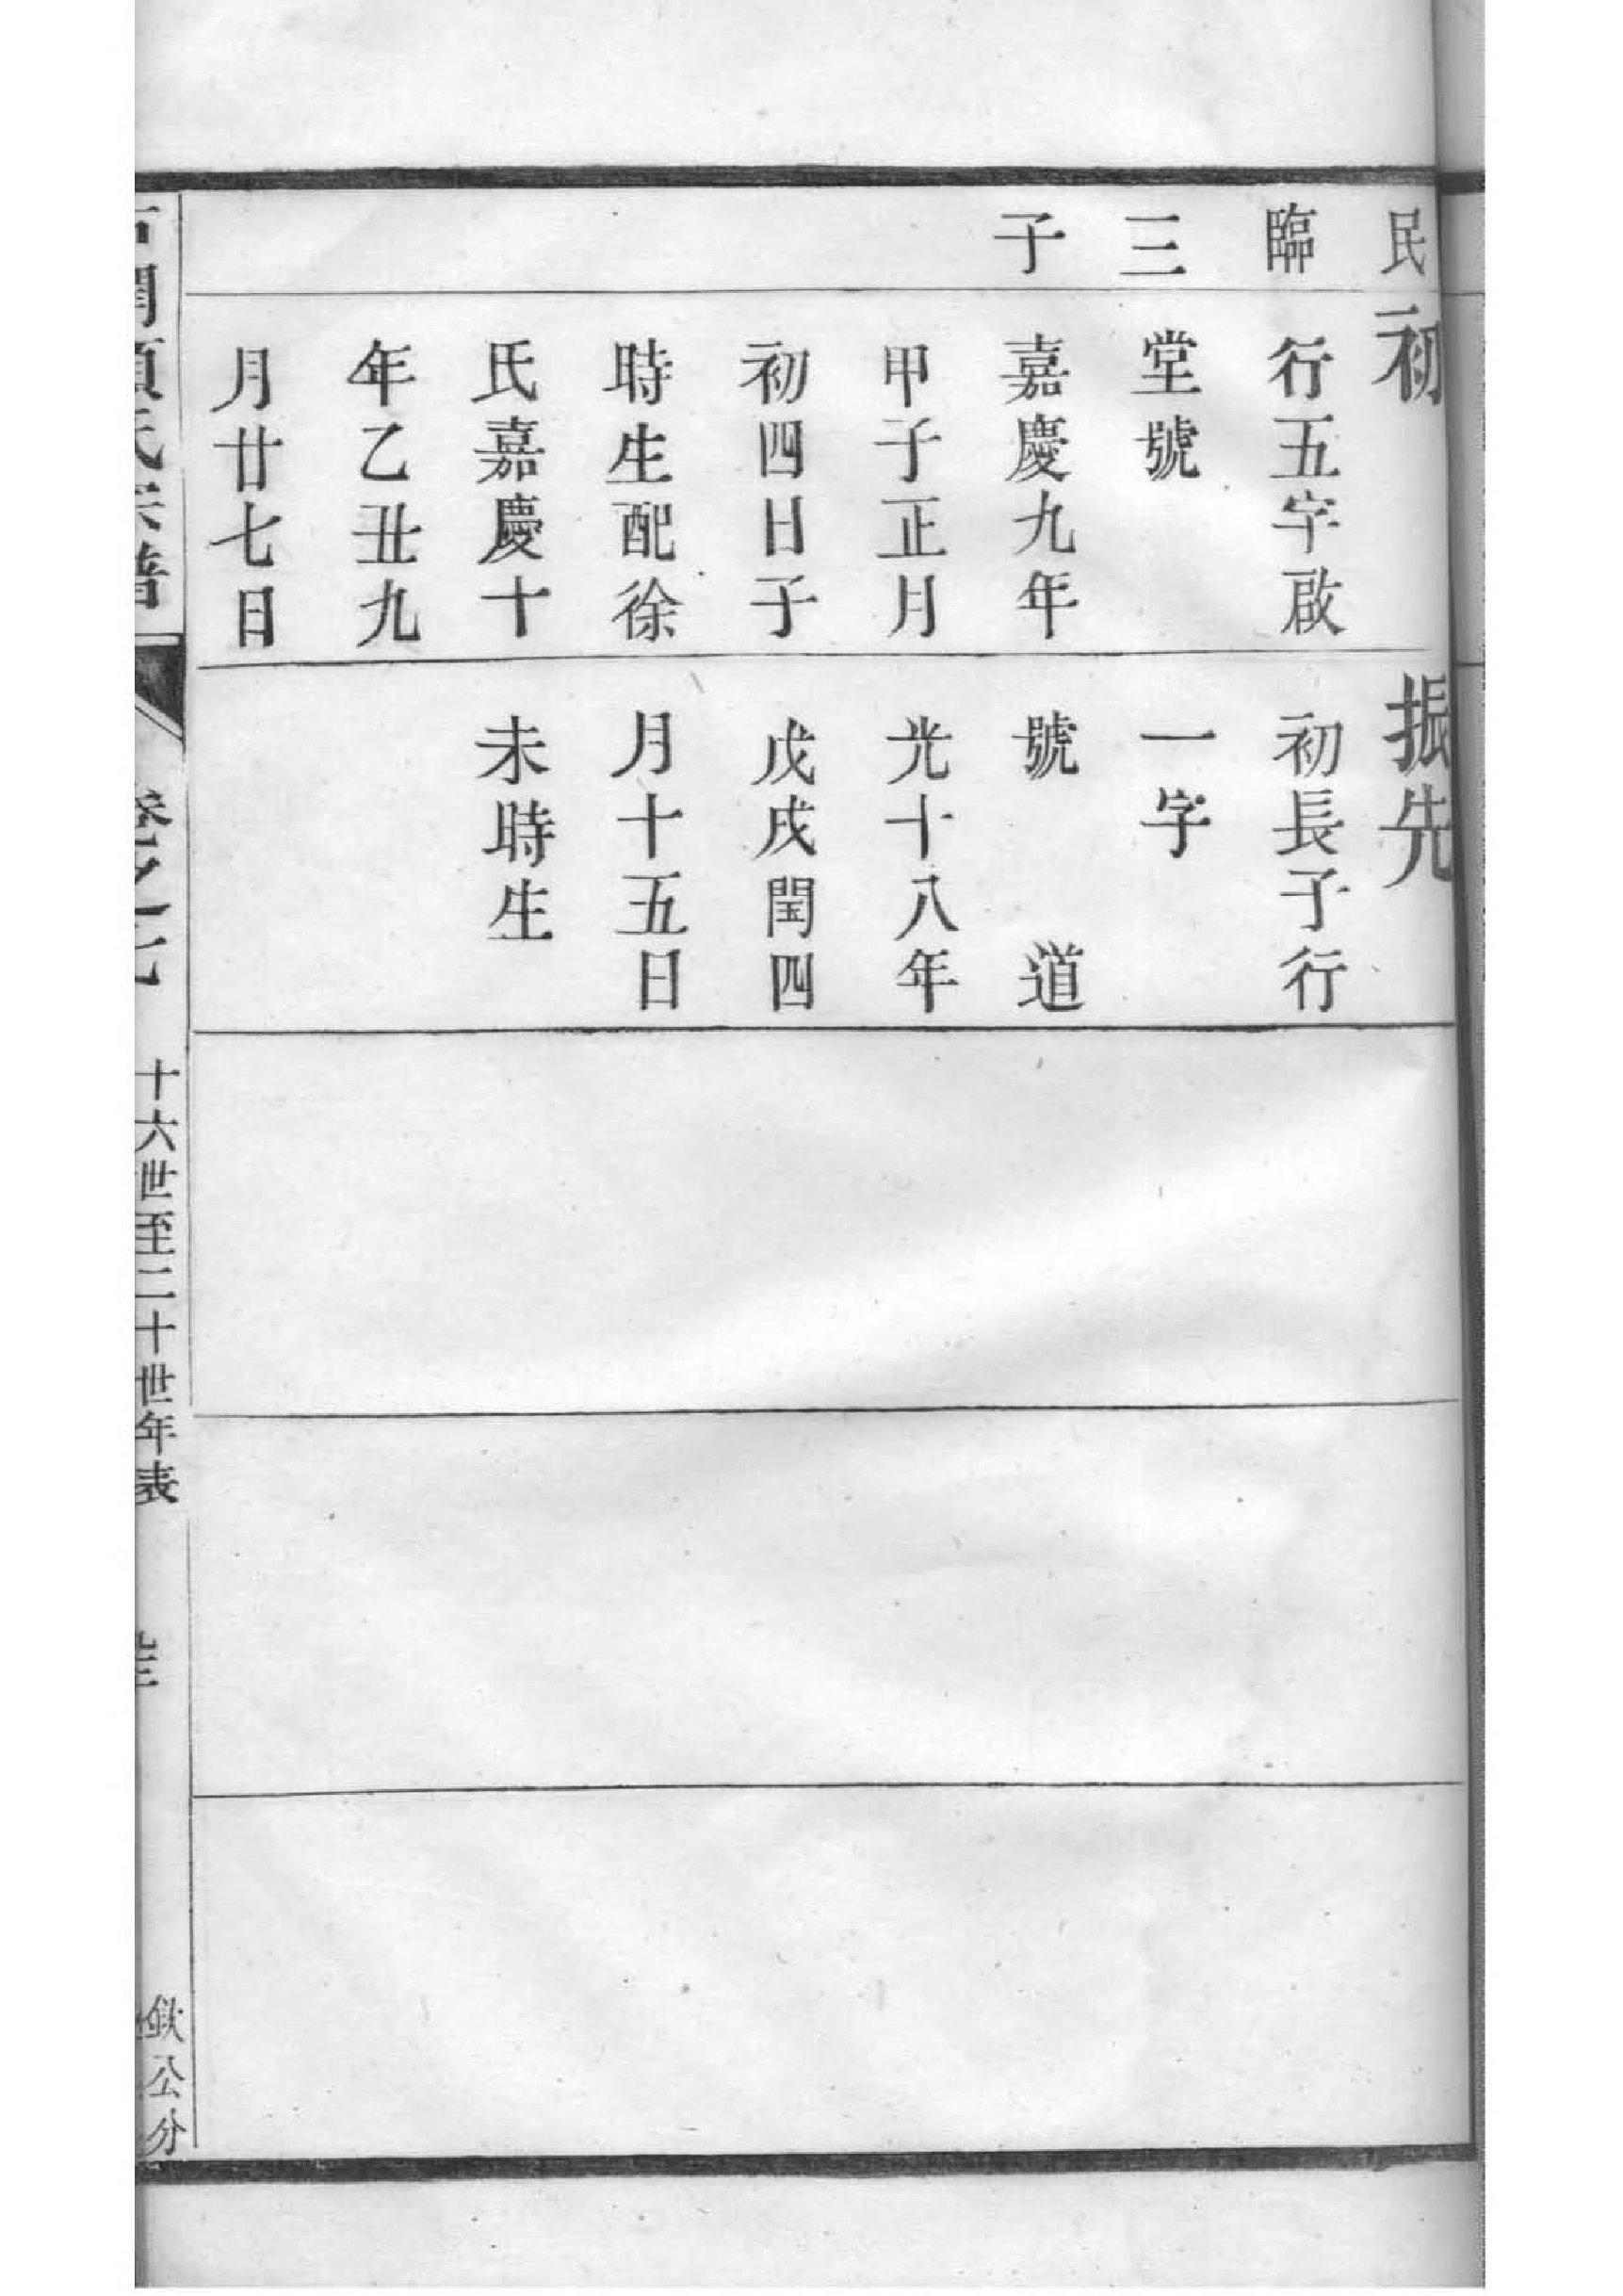 民
臨
三
子
初
行五字啟
堂號
嘉慶九年
甲子正月
初四日子
時生配徐
氏嘉慶十
年乙丑九
月廿七日
振先
初長子行
一字
號　道
光十八年
戊戌閏四
月十五日
未時生
氏宗譜
卷之十七
十六世至二十世年表
公分